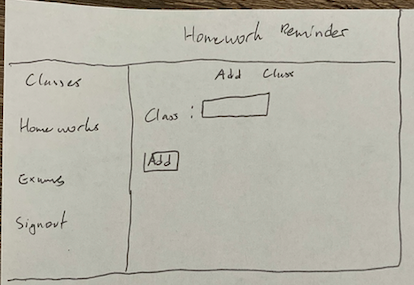 Homework Reminder
Classes
Homeworks
Exams
Signout
Add Class
Class :
Add